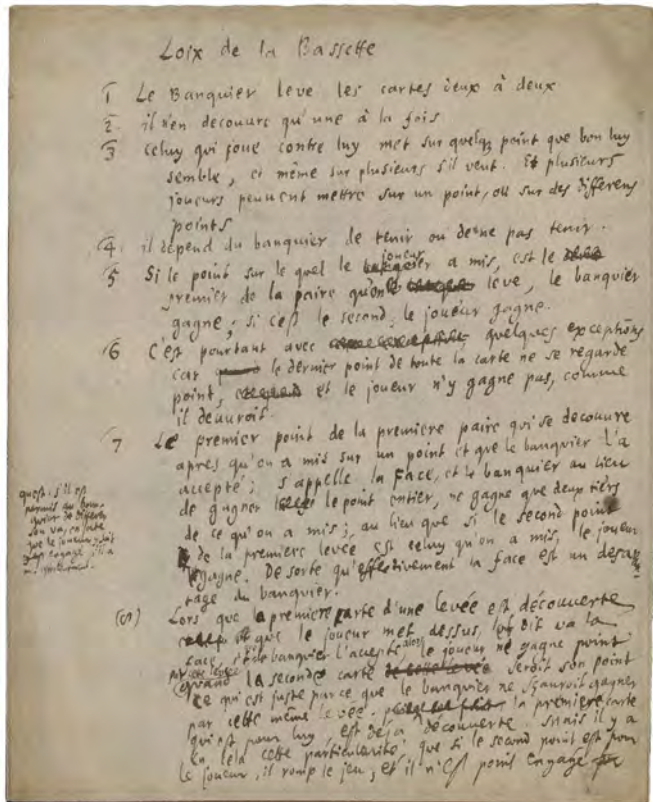 Loix de la Bassette
1 Le Banquier leve les cartes deux à deux
2. il n'en decouvre qu'une à la fois
3 celuy qui joue contre luy met sur quelq point que bon luy
semble, et même sur plusieurs s'il veut. Et plusieurs
joueurs peuvent mettre sur un point, ou sur des differens
points
4. il depend du banquier de tenir ou de ne pas tenir.
5 Si le point sur le quel le joueur a mis, est le
premier de la paire qu'on leve, le banquier
gagne; si c'est le second, le joueur gagne.
6 C'est pourtant avec quelques exceptions
car le dernier point de toute la carte ne se regarde
point, et le joueur n'y gagne pas, comme
il devroit.
7 Le premier point de la premiere paire qui se decouvre
apres qu'on a mis sur un point et que le banquier l'a
accepté; s'appelle la face, et le banquier au lieu
de gagner le point entier, ne gagne que deux tiers
de ce qu'on a mis; au lieu que si le second point
de la premiere levée est celuy qu'on a mis, le joueur
gagne. De sorte qu'effectivement la face est un desavan
tage du banquier.
quest. s'il est
permis au Ban-
quier de differer
son va, en sorte
que le joueur soit
(8) Lors que la premiere carte d'une levée est découverte
et que le joueur met dessus, et dit va la
face, et le banquier l'accepte alors le joueur ne gagne point
par cette levée quand la seconde carte seroit son point
ce qui est juste parce que le banquier ne sçauroit gagner
par cette même levée, la premiere carte
qui est pour luy est déja découverte. Mais il y a
en cela cette particularité, que si le second point est pour
le joueur, il romp le jeu, et il n'est point engagé